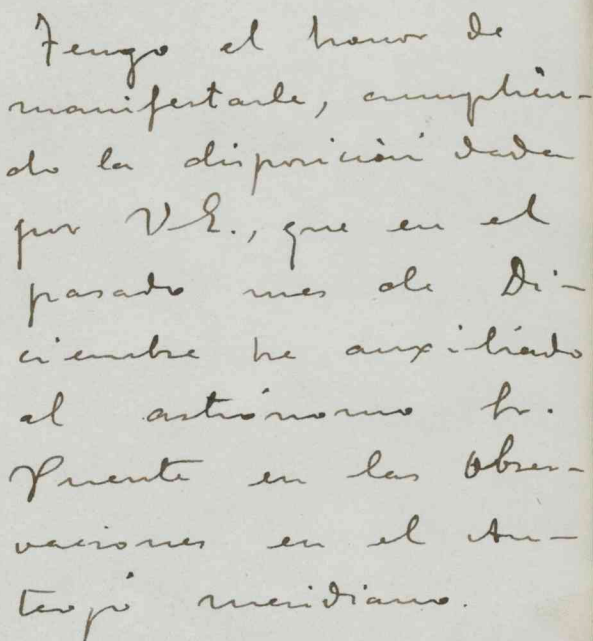 Tengo el honor de
manifestarle, cumplién-
do la disposición dada
por V.E., que en el
pasado mes de Di-
ciembre he auxiliado
al astrónomo Sr.
Puente en las obser-
vaciones en el An-
teojo meridiano.